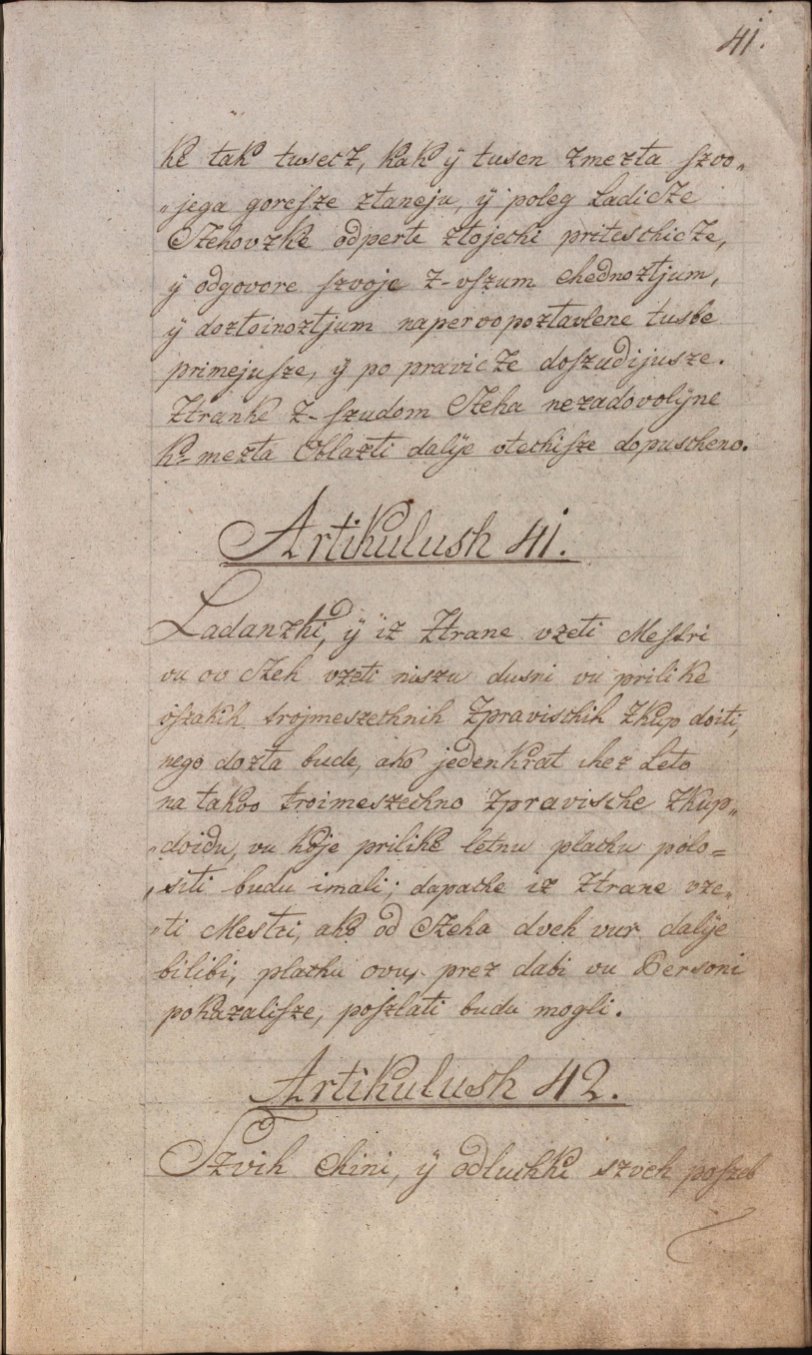 41.
ke tak tusecz, kak ÿ tusen zmezta szvo„
„jega goresze ztaneju, ÿ poleg Ladicze
Czehovzke odperte ztojechi priteschicze,
ÿ odgovore szvoje z-vszum chednoztjum,
ÿ doztoinoztjum napervopoztavlene tusbe
primejusze, ÿ po pravicze doszudijusze.
Ztranke z-szudom Czeha nezadovolÿne
k-mezta Oblazti dalÿe otechisze dopuscheno.
Artikulush 41.
Ladanzki, ÿ iz Ztrane vzeti Mestri
vu ov Czeh vzeti niszu dusni vu prilike
vszakih trojmeszechnih Zpravischih Zkup doiti,
nego dozta bude, ako jedenkrat chez Leto
na takvo troimeszechno Zpravische Zkup„
„doidu, vu koje prilike letnu plachu polo=
„siti budu imali; dapache iz Ztrane vze„
„ti Mestri, ako od Czeha dveh vur dalÿe
bilibi, plachu ovu prez dabi vu Personi
pokazalisze, poszlati budu mogli.
Artikulush 42.
Szvih Chini, ÿ odluchki szveh poszeb